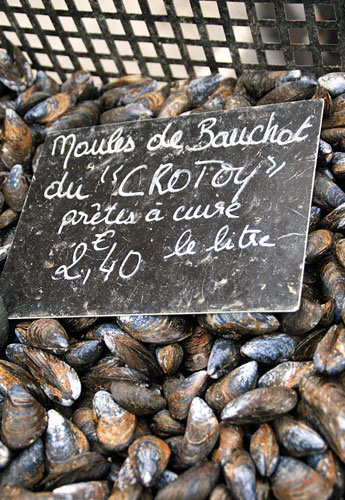 Moules de Bouchot
du "CROTOY"
prêtes à cuire
2,40 € le litre